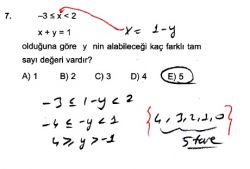 7. –3 ≤ x < 2
x + y = 1
x = 1-y
olduğuna göre y nin alabileceği kaç farklı tam
sayı değeri vardır?
A) 1 B) 2 C) 3 D) 4 E) 5
-3 ≤ 1-y < 2
-4 ≤ -y < 1
4 ≥ y > -1
{4, 3, 2, 1, 0}
5 tane